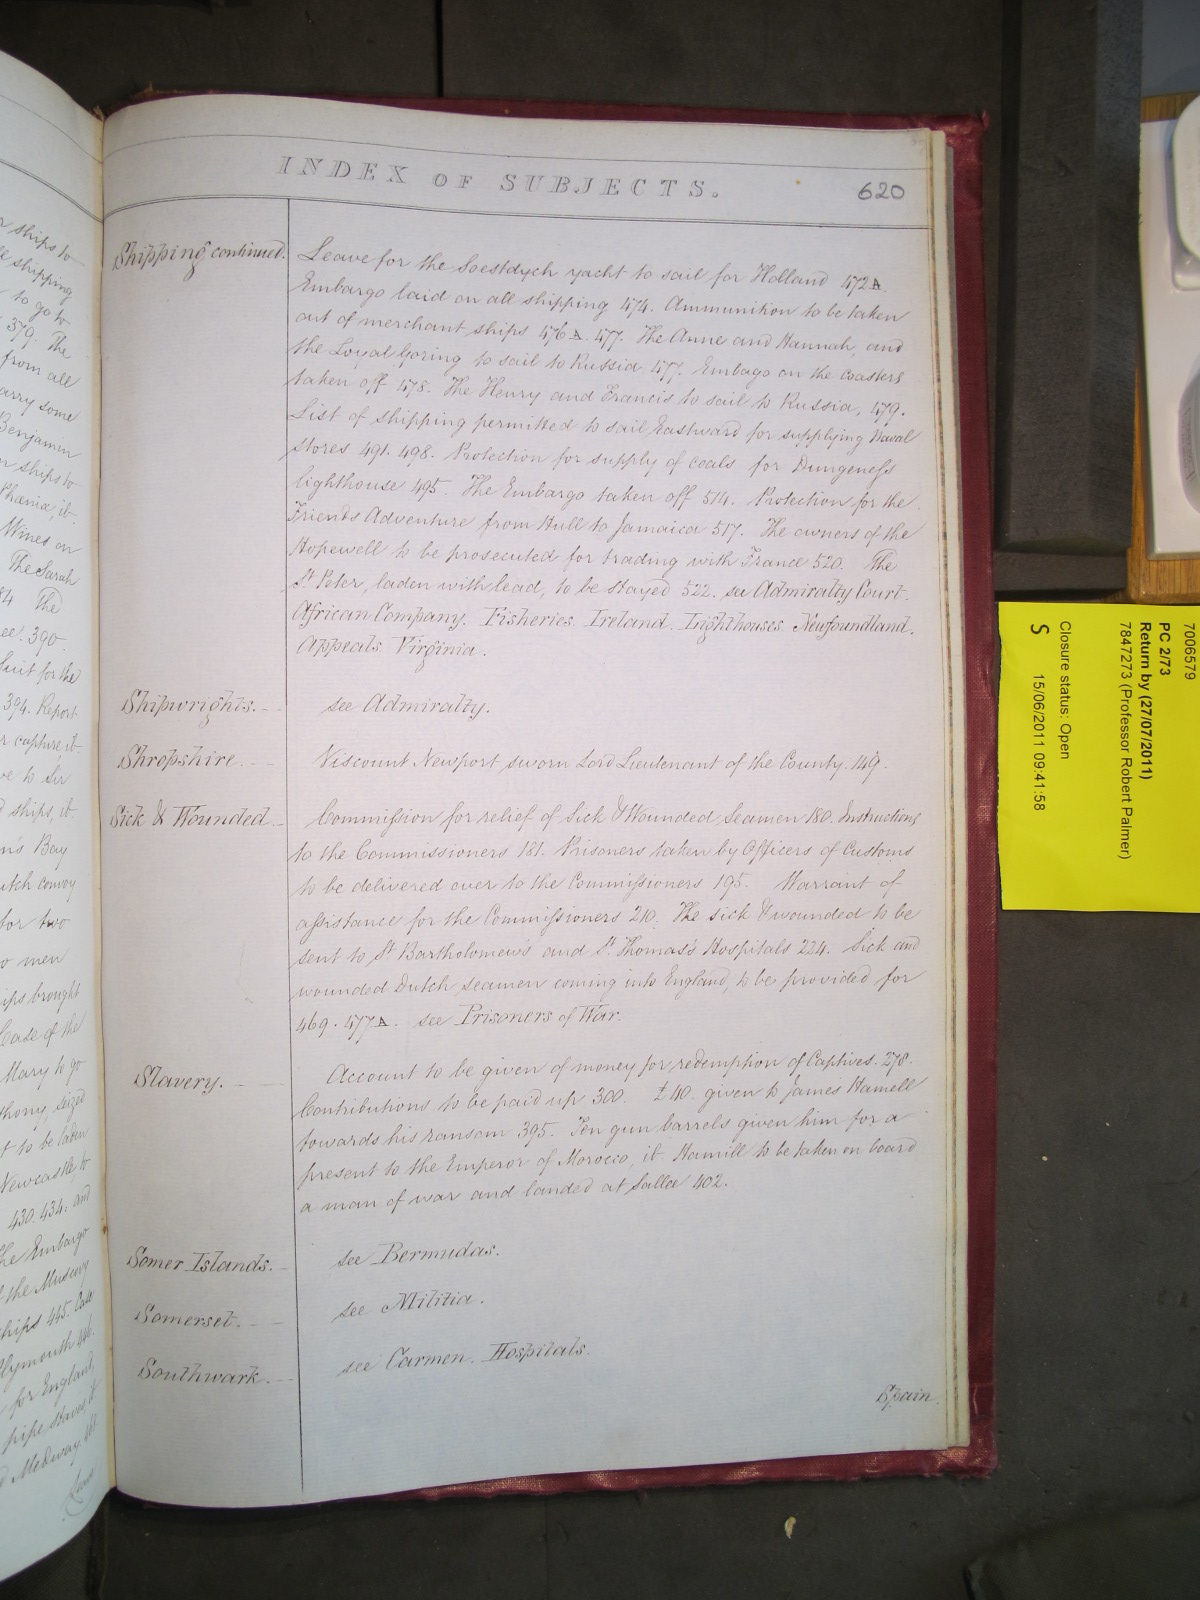 INDEX OF SUBJECTS.
620
Shipping continued.
Leave for the Soestdych yacht to sail for Holland 472A.
Embargo laid on all shipping 474. Ammunition to be taken
out of merchant ships 476A. 477. The Anne and Hannah, and
the Loyal Goring to sail to Russia 477. Embago on the coasters
taken off 478. The Henry and Francis to sail to Russia, 479.
List of shipping permitted to sail Eastward for supplying Naval
stores 491. 498. Protection for supply of coals for Dungeness
lighthouse 495. The Embargo taken off 514. Protection for the
Friends Adventure from Hull to Jamaica 517. The owners of the
Hopewell to be prosecuted for trading with France 520. The
St Peter, laden with lead, to be stayed 522. see Admiralty Court.
African Company. Fisheries. Ireland. Lighthouses. Newfoundland.
Appeals. Virginia.
Shipwrights. see Admiralty.
Shropshire. Viscount Newport sworn Lord Lieutenant of the County. 149.
Sick & Wounded Commission for relief of Sick & Wounded Seamen 180. Instructions
to the Commissioners 181. Prisoners taken by Officers of Customs
to be delivered over to the Commissioners 195. Warrant of
assistance for the Commissioners 210. The sick & wounded to be
sent to St Bartholomew's and St Thomas's Hospitals 224. Sick and
wounded Dutch seamen coming into England, to be provided for
469. 477A. see Prisoners of War.
Slavery. Account to be given of money for redemption of Captives. 278.
Contributions to be paid up 300. £40. given to James Hamell
towards his ransom 395. Ten gun barrels given him for a
present to the Emperor of Morocco, it. Hamill to be taken on board
a man of war and landed at Sallee 402.
Somer Islands. see Bermudas.
Somerset. see Militia.
Southwark. see Carmen. Hospitals.
Spain.
r ships to
shipping
to go to
379. The
from all
arry some
Benjamin
ships to
it.
Wines on
The Sarah
The
390.
Suit for the
394. Report
r capture, it.
to Sir
ships, it.
Bay
utch convoy
for two
o men
ips brought
Case of the
Mary to go
seized
to be laden
Newcastle, to
430. 434. and
The Embargo
the Muscovy
ships 445. Case
Plymouth 446.
for England,
pipe staves, it
Medway
7006579
PC 2/73
Return by (27/07/2011)
7847273 (Professor Robert Palmer)
Closure status: Open
S 15/06/2011 09:41:58